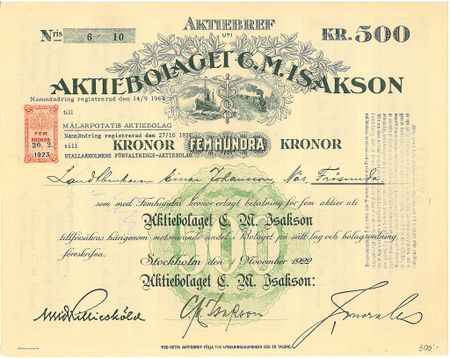 AKTIEBREF
UTI
Nris 6 - 10
KR. 500
AKTIEBOLAGET C.M. ISAKSON
Namnändring registrerad den 14/9 1964
till
MÄLARPOTATIS AKTIEBOLAG
Namnändring registrerad den 27/10 1971
till
STALLARHOLMENS FÖRVALTNINGS-AKTIEBOLAG
FEM
KRONOR
20. 2.
1923
KRONOR FEMHUNDRA KRONOR
Einar Johansson, Näs, Frösunda
som med Femhundra kronor erlagt betalning för fem aktier uti
Aktiebolaget C. M. Isakson
tillförsäkras härigenom motsvarande andel i Bolaget på sätt lag och bolagsordning
föreskrifva.
500
Stockholm den November 1922
Aktiebolaget C. M. Isakson:
C M Isakson
MED DETTA AKTIEBREF FÖLJA TIO UTDELNINGSKUPONGER OCH EN TALONG.
500:-